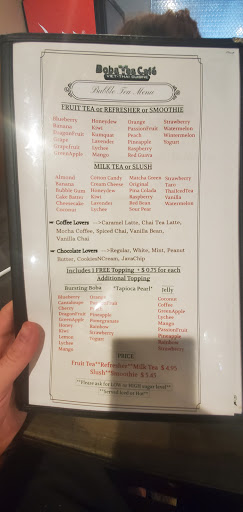 Boba Tea Café
VIET-THAI CUISINE
Bubble Tea Menu
FRUIT TEA or REFRESHER or SMOOTHIE
Blueberry Honeydew Orange Strawberry
Banana Kiwi PassionFruit Watermelon
DragonFruit Kumquat Peach Watermelon
Grape Lavender Pineapple Yogurt
Grapefruit Lychee Raspberry
GreenApple Mango Red Guava
MILK TEA or SLUSH
Almond Cotton Candy Matcha Green Strawberry
Banana Cream Cheese Original Taro
Bubble Gum Honeydew Pina Colada ThaiIcedTea
Cake Batter Kiwi Raspberry Vanilla
Cheesecake Lavender Red Bean Watermelon
Coconut Lychee Sour Pear
Coffee Lovers -->Caramel Latte, Chai Tea Latte,
Mocha Coffee, Spiced Chai, Vanilla Bean,
Vanilla Chai
Chocolate Lovers -->Regular, White, Mint, Peanut
Butter, CookiesNCream, JavaChip
Includes 1 FREE Topping + $0.75 for each
Additional Topping
Bursting Boba "Tapioca Pearl" Jelly
Blueberry Orange Coconut
Cantaloupe Passionfruit Coffee
Cherry Peach Green Apple
DragonFruit Pineapple Lychee
GreenApple Pomegranate Mango
Honey Rainbow PassionFruit
Kiwi Strawberry Pineapple
Lemon Yogurt Rainbow
Lychee Strawberry
Mango
PRICE
Fruit Tea**Refresher**Milk Tea $4.95
Slush**Smoothie $5.45
**Please ask for LOW or HIGH sugar level**
**Served Iced or Hot**